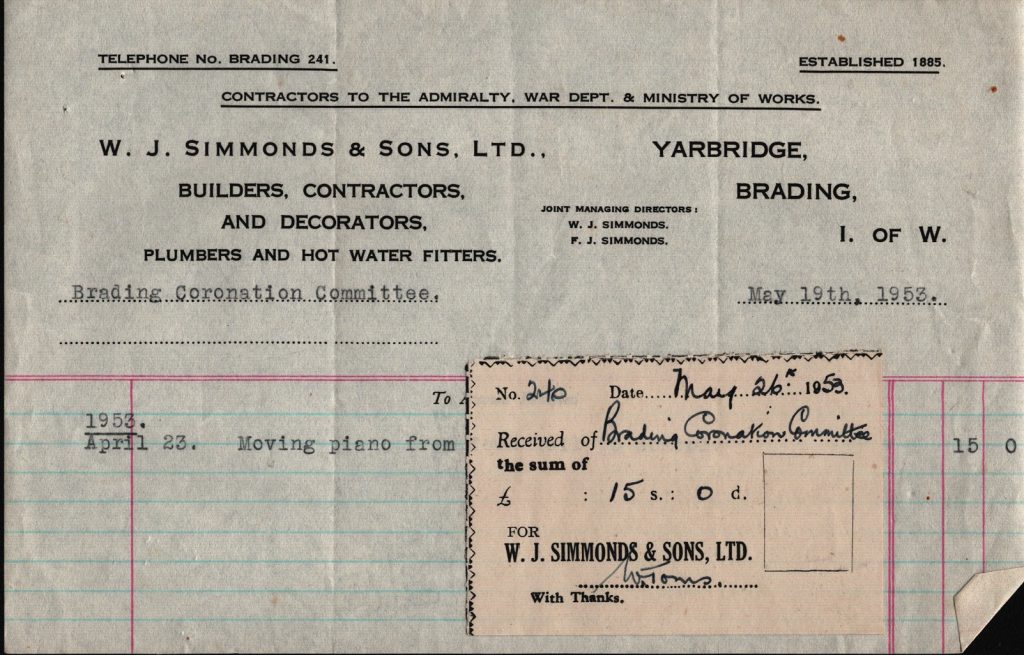 TELEPHONE No. BRADING 241.
ESTABLISHED 1885.
CONTRACTORS TO THE ADMIRALTY, WAR DEPT. & MINISTRY OF WORKS.
W. J. SIMMONDS & SONS, LTD.,
YARBRIDGE,
BUILDERS, CONTRACTORS,
BRADING,
AND DECORATORS,
JOINT MANAGING DIRECTORS:
W. J. SIMMONDS.
F. J. SIMMONDS.
I. OF W.
PLUMBERS AND HOT WATER FITTERS.
Brading Coronation Committee.
May 19th, 1953.
To
1953.
April 23. Moving piano from
15 0
No. 240 Date May 26th 1953.
Received of Brading Coronation Committee
the sum of
£ : 15 s. : 0 d.
FOR
W. J. SIMMONDS & SONS, LTD.
W. Toms.
With Thanks.